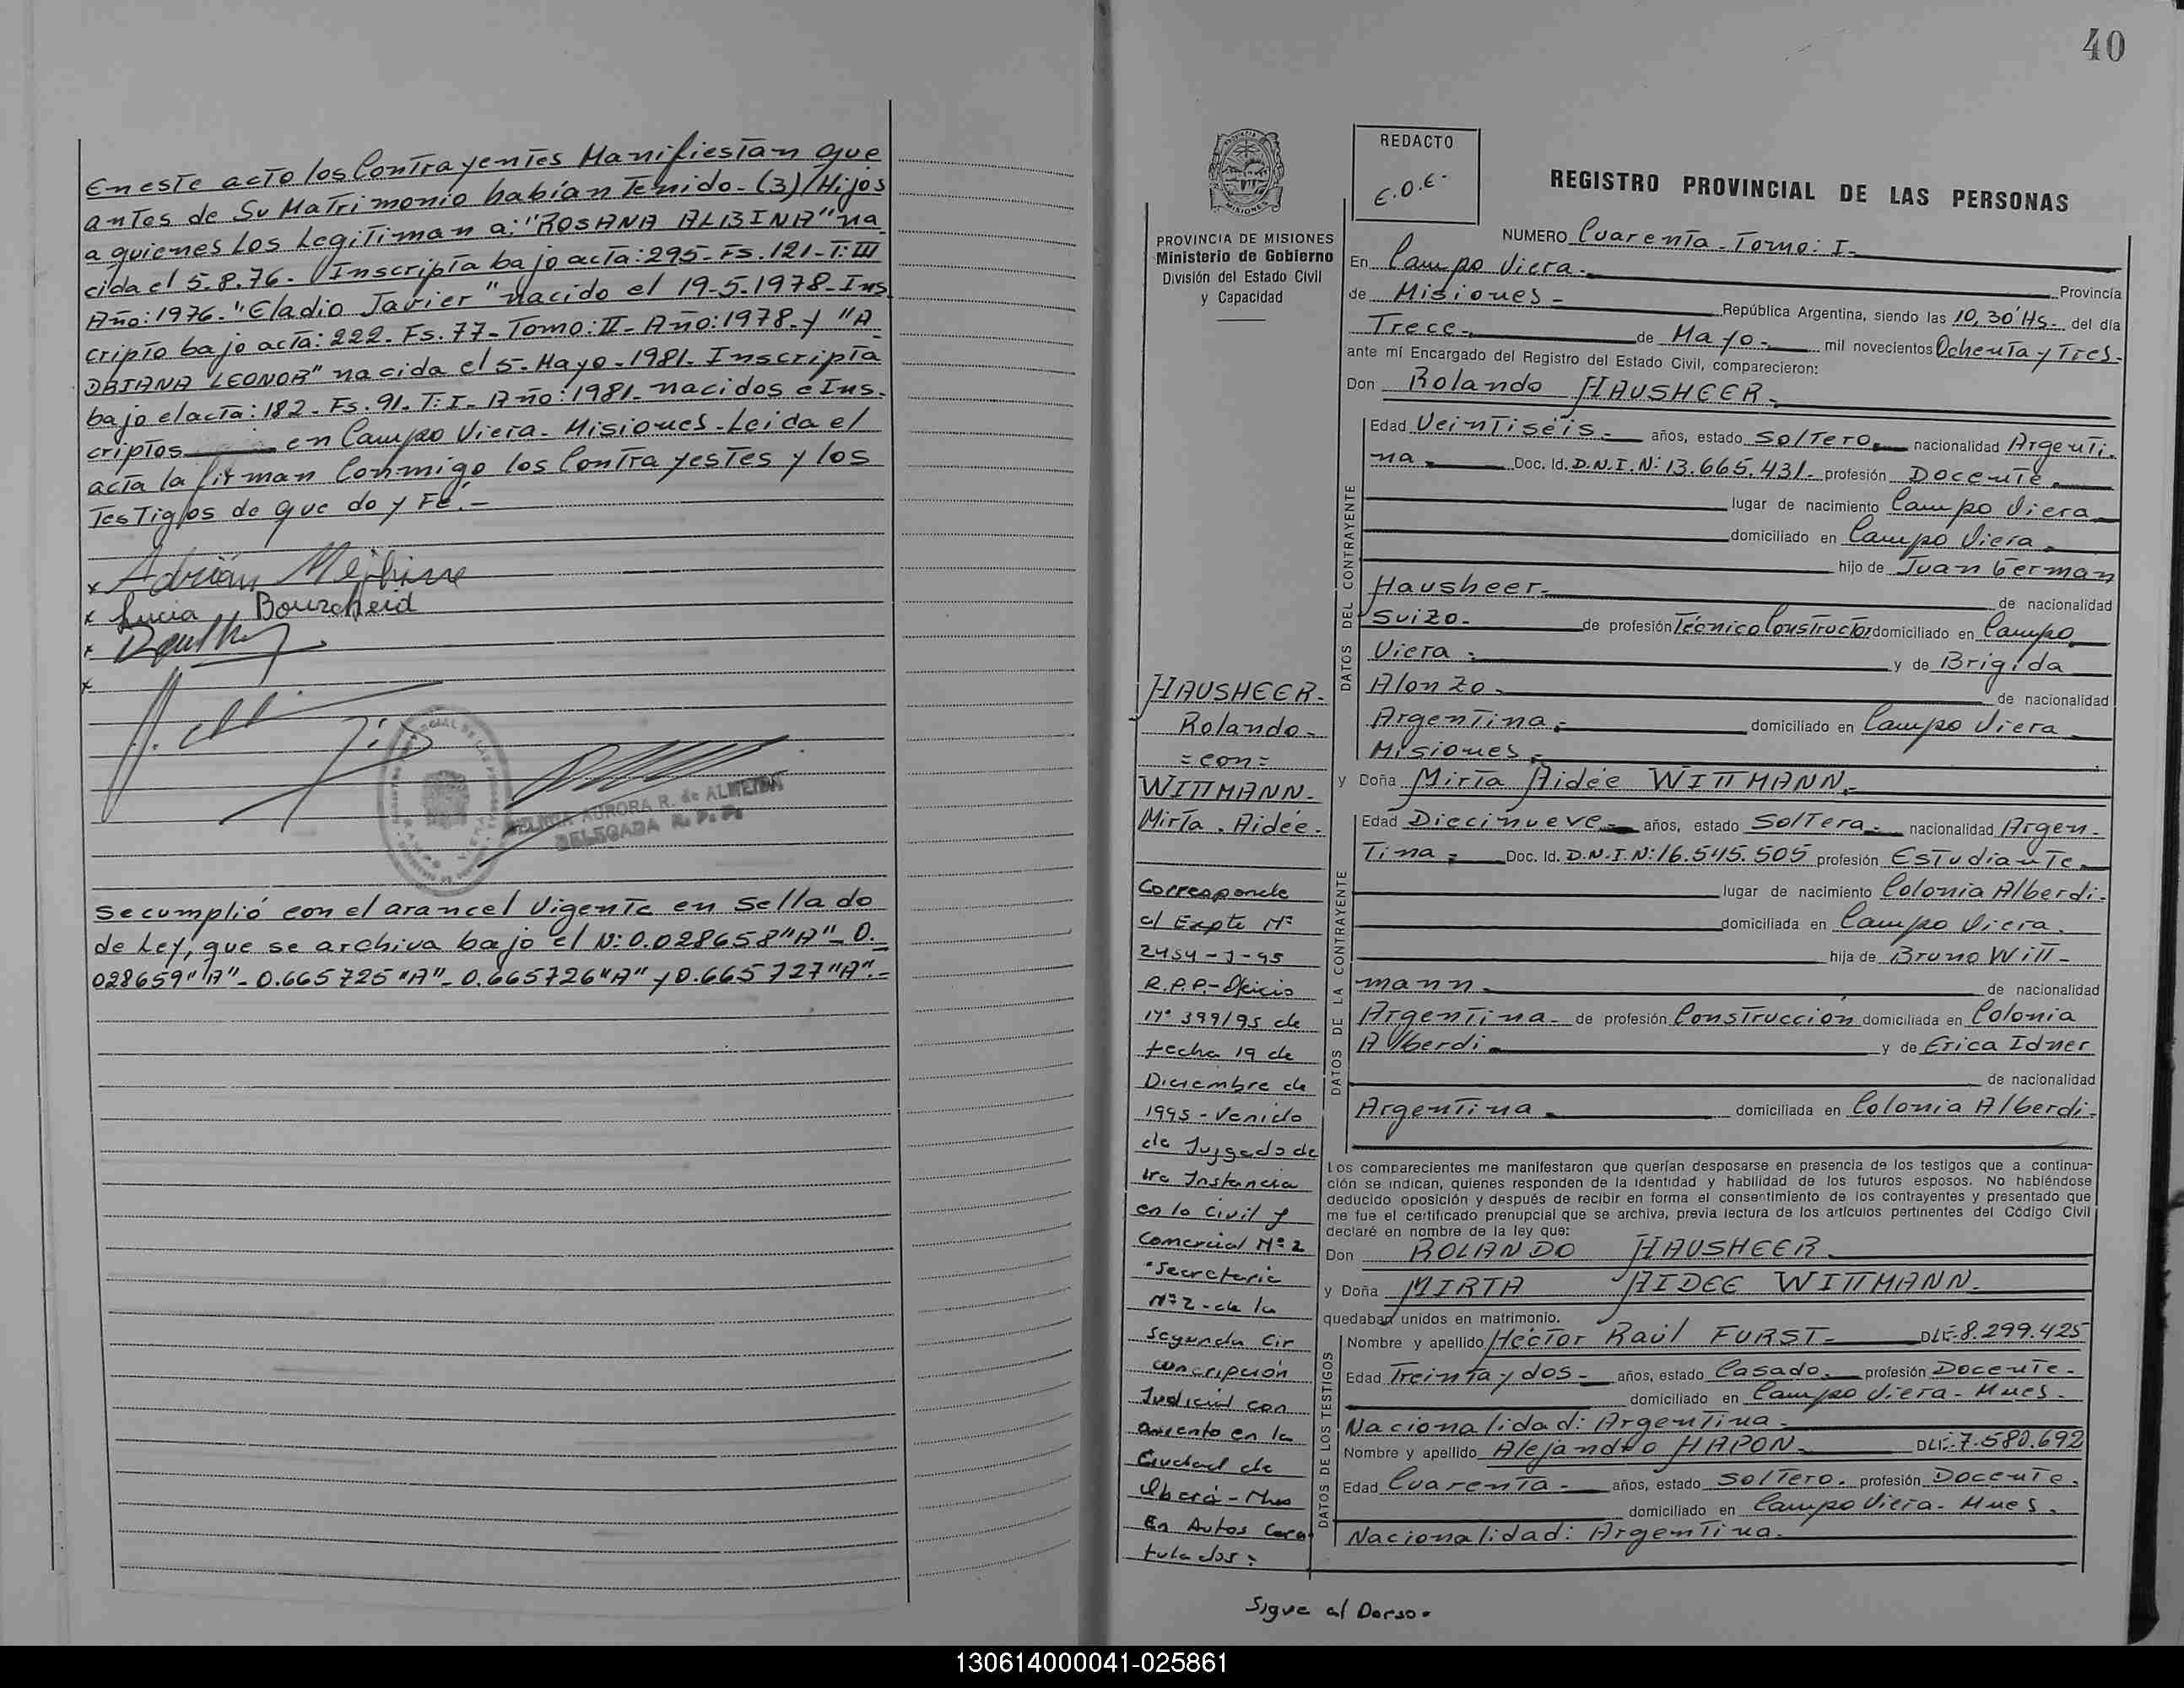 En este acto los Contrayentes Manifiestan que
antes de Su Matrimonio habían Tenido - (3) Hijos
a quienes Los Legitiman a: "ROSANA ALBINA" na
cida el 5.8.76. Inscripta bajo acta: 295- Fs. 121- T: III
Año: 1976. "Eladio Javier" nacido el 19-5-1978- Ins
cripto bajo acta: 222. Fs. 77- Tomo: II- Año: 1978- y "A
DRIANA LEONOR" nacida el 5- Mayo- 1981. Inscripta
bajo el acta: 182. Fs. 91. T: I- Año: 1981- nacidos e Ins.
criptos en Campo Viera- Misiones- Leida el
acta la firman Conmigo los Contrayestes y los
Testigos de que do y Fé.-
x Adrián
x Lucia Bourscheid
x
x
AURORA R. de ALMEIDA
DELEGADA R. P. P.
Se cumplió con el arancel Vigente en Sellado
de Ley, que se archiva bajo el N: 0.028658 "A"- 0.
028659 "A"- 0.665725 "A"- 0.665726 "A" y 0.665727 "A".=
40
REDACTO
E.O.E.
MISIONES
PROVINCIA DE MISIONES
Ministerio de Gobierno
División del Estado Civil
y Capacidad
HAUSHEER-
Rolando-
=con=
WITTMANN-
Mirta. Aidée.
Corresponde
al Expte Nº
2454-J-95
R.P.P.- Oficio
Nº 399/95 de
fecha 19 de
Diciembre de
1995 - Venido
de Juzgado de
1ra Instancia
en lo Civil y
Comercial Nº 2
Secretaria
Nº 2 - de la
Segunda Cir
cuncripción
Judicial con
asiento en la
Ciudad de
Oberá - Mnes
En Autos Cara
tulados:
REGISTRO PROVINCIAL DE LAS PERSONAS
NUMERO Cuarenta - Tomo: I-
En Campo Viera- Provincia
de Misiones- República Argentina, siendo las 10,30'Hs- del día
Trece- de Mayo- mil novecientos Ochenta y Tres-
ante mí Encargado del Registro del Estado Civil, comparecieron:
Don Rolando HAUSHEER-
DATOS DEL CONTRAYENTE
Edad Veintiseis- años, estado Soltero- nacionalidad Argenti-
na- Doc. Id. D.N.I. N: 13.665.431- profesión Docente-
lugar de nacimiento Campo Viera-
domiciliado en Campo Viera-
hijo de Juan German
Hausheer- de nacionalidad
Suizo- de profesión Técnico Constructor domiciliado en Campo
Viera- y de Brigida
Alonzo- de nacionalidad
Argentina- domiciliado en Campo Viera-
Misiones-
y Doña Mirta Aidée WITTMANN-
DATOS DE LA CONTRAYENTE
Edad Diecinueve- años, estado Soltera- nacionalidad Argen-
Tina- Doc. Id. D.N.I. N: 16.545.505 profesión Estudiante-
lugar de nacimiento Colonia Alberdi-
domiciliada en Campo Viera.
hija de Bruno Witt-
mann- de nacionalidad
Argentina- de profesión Construcción domiciliada en Colonia
Alberdi- y de Erica Idner
de nacionalidad
Argentina- domiciliada en Colonia Alberdi-
Los comparecientes me manifestaron que querían desposarse en presencia de los testigos que a continua-
ción se indican, quienes responden de la identidad y habilidad de los futuros esposos. No habiéndose
deducido oposición y después de recibir en forma el consentimiento de los contrayentes y presentado que
me fue el certificado prenupcial que se archiva, previa lectura de los artículos pertinentes del Código Civil
declaré en nombre de la ley que:
Don ROLANDO HAUSHEER-
y Doña MIRTA AIDEE WITTMANN-
quedaban unidos en matrimonio.
DATOS DE LOS TESTIGOS
Nombre y apellido Héctor Raúl FURST- DLE-8.299.425
Edad Treinta y dos- años, estado Casado- profesión Docente-
domiciliado en Campo Viera- Mnes-
Nacionalidad: Argentina-
Nombre y apellido Alejandro HAPON- DLE-7.580.692
Edad Cuarenta- años, estado Soltero- profesión Docente.
domiciliado en Campo Viera- Mnes.
Nacionalidad: Argentina-
Sigue al Dorso.
130614000041-025861